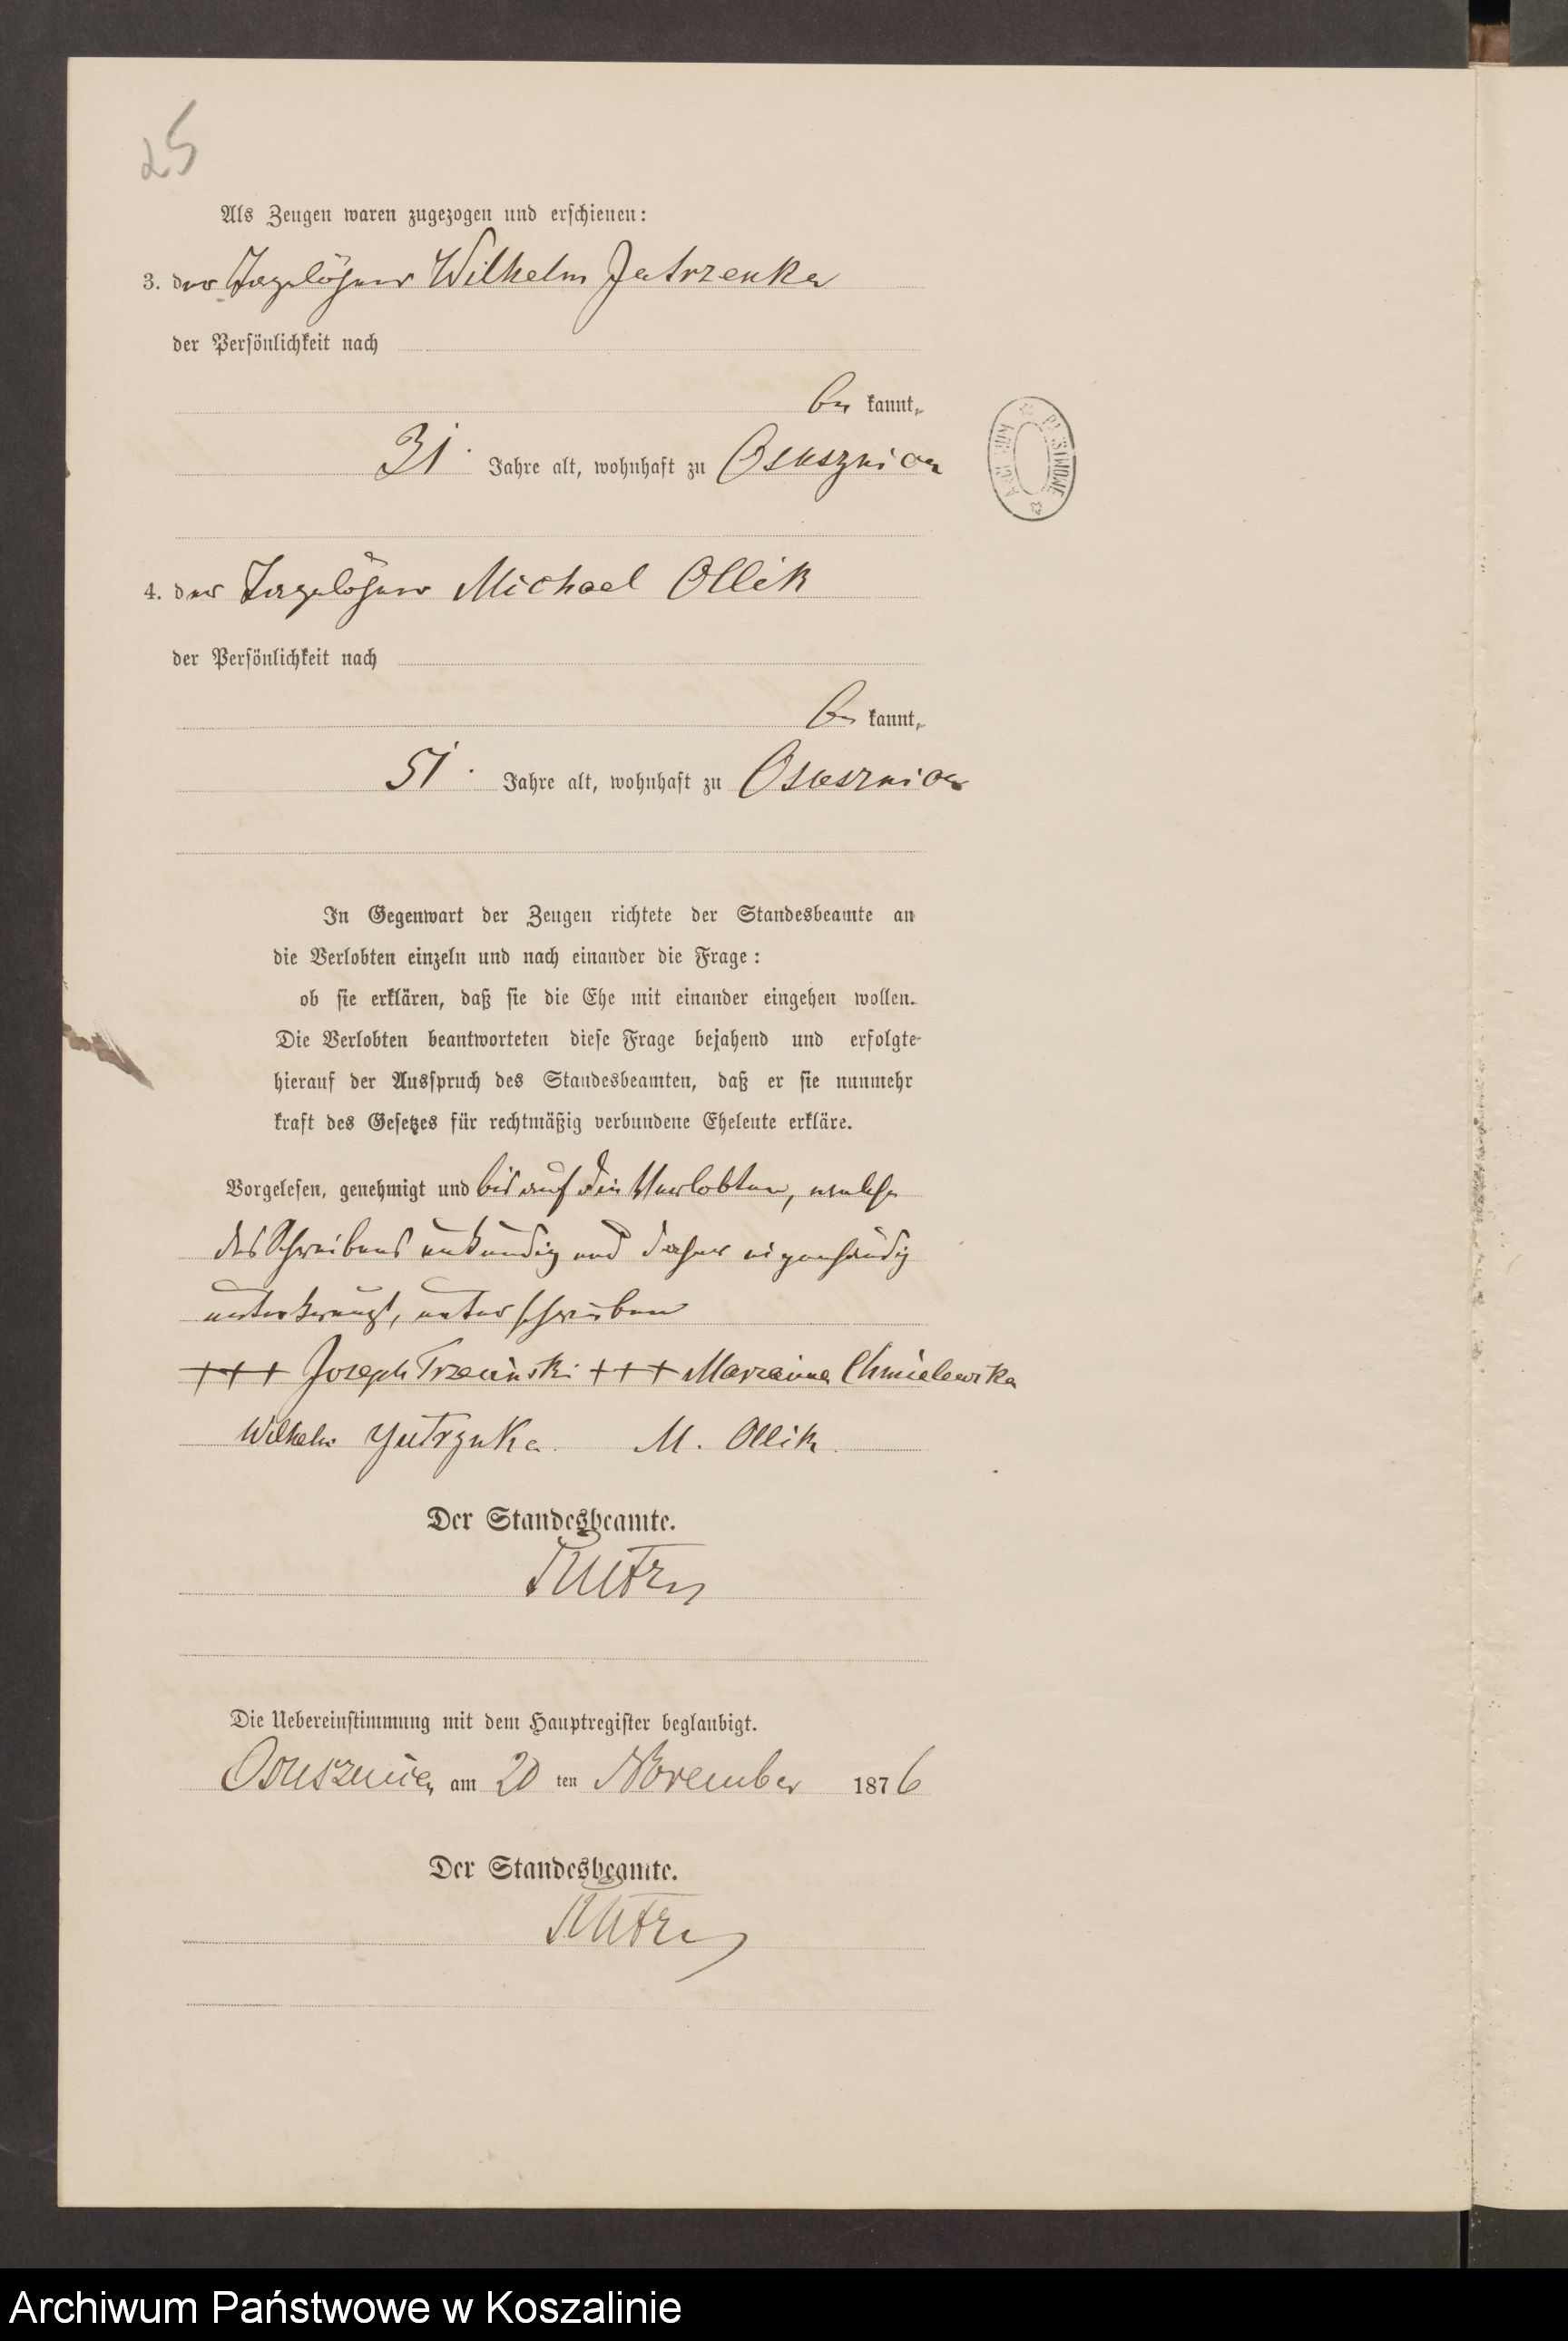 25
Als Zeugen waren zugezogen und erschienen:
3. der Tagelöhner Wilhelm Jutrzenka
der Persönlichkeit nach
be kannt,
31 Jahre alt, wohnhaft zu Osusznica
4. der Tagelöhner Michael Ollik
der Persönlichkeit nach
be kannt,
51 Jahre alt, wohnhaft zu Osusznica
In Gegenwart der Zeugen richtete der Standesbeamte an
die Verlobten einzeln und nach einander die Frage:
ob sie erklären, daß sie die Ehe mit einander eingehen wollen.
Die Verlobten beantworteten diese Frage bejahend und erfolgte
hierauf der Ausspruch des Standesbeamten, daß er sie nunmehr
kraft des Gesetzes für rechtmäßig verbundene Eheleute erkläre.
Vorgelesen, genehmigt und bis auf die Verlobten, welche
des Schreibens unkundig und daher eigenhändig
unterkreuzt, unterschrieben
+++ Joseph Trzecinski +++ Marianna Chmielewska
Wilhelm Jutrznka M. Ollik
Der Standesbeamte.
Die Uebereinstimmung mit dem Hauptregister beglaubigt.
Osusznica am 20 ten November 1876
Der Standesbeamte.
Archiwum Państwowe w Koszalinie